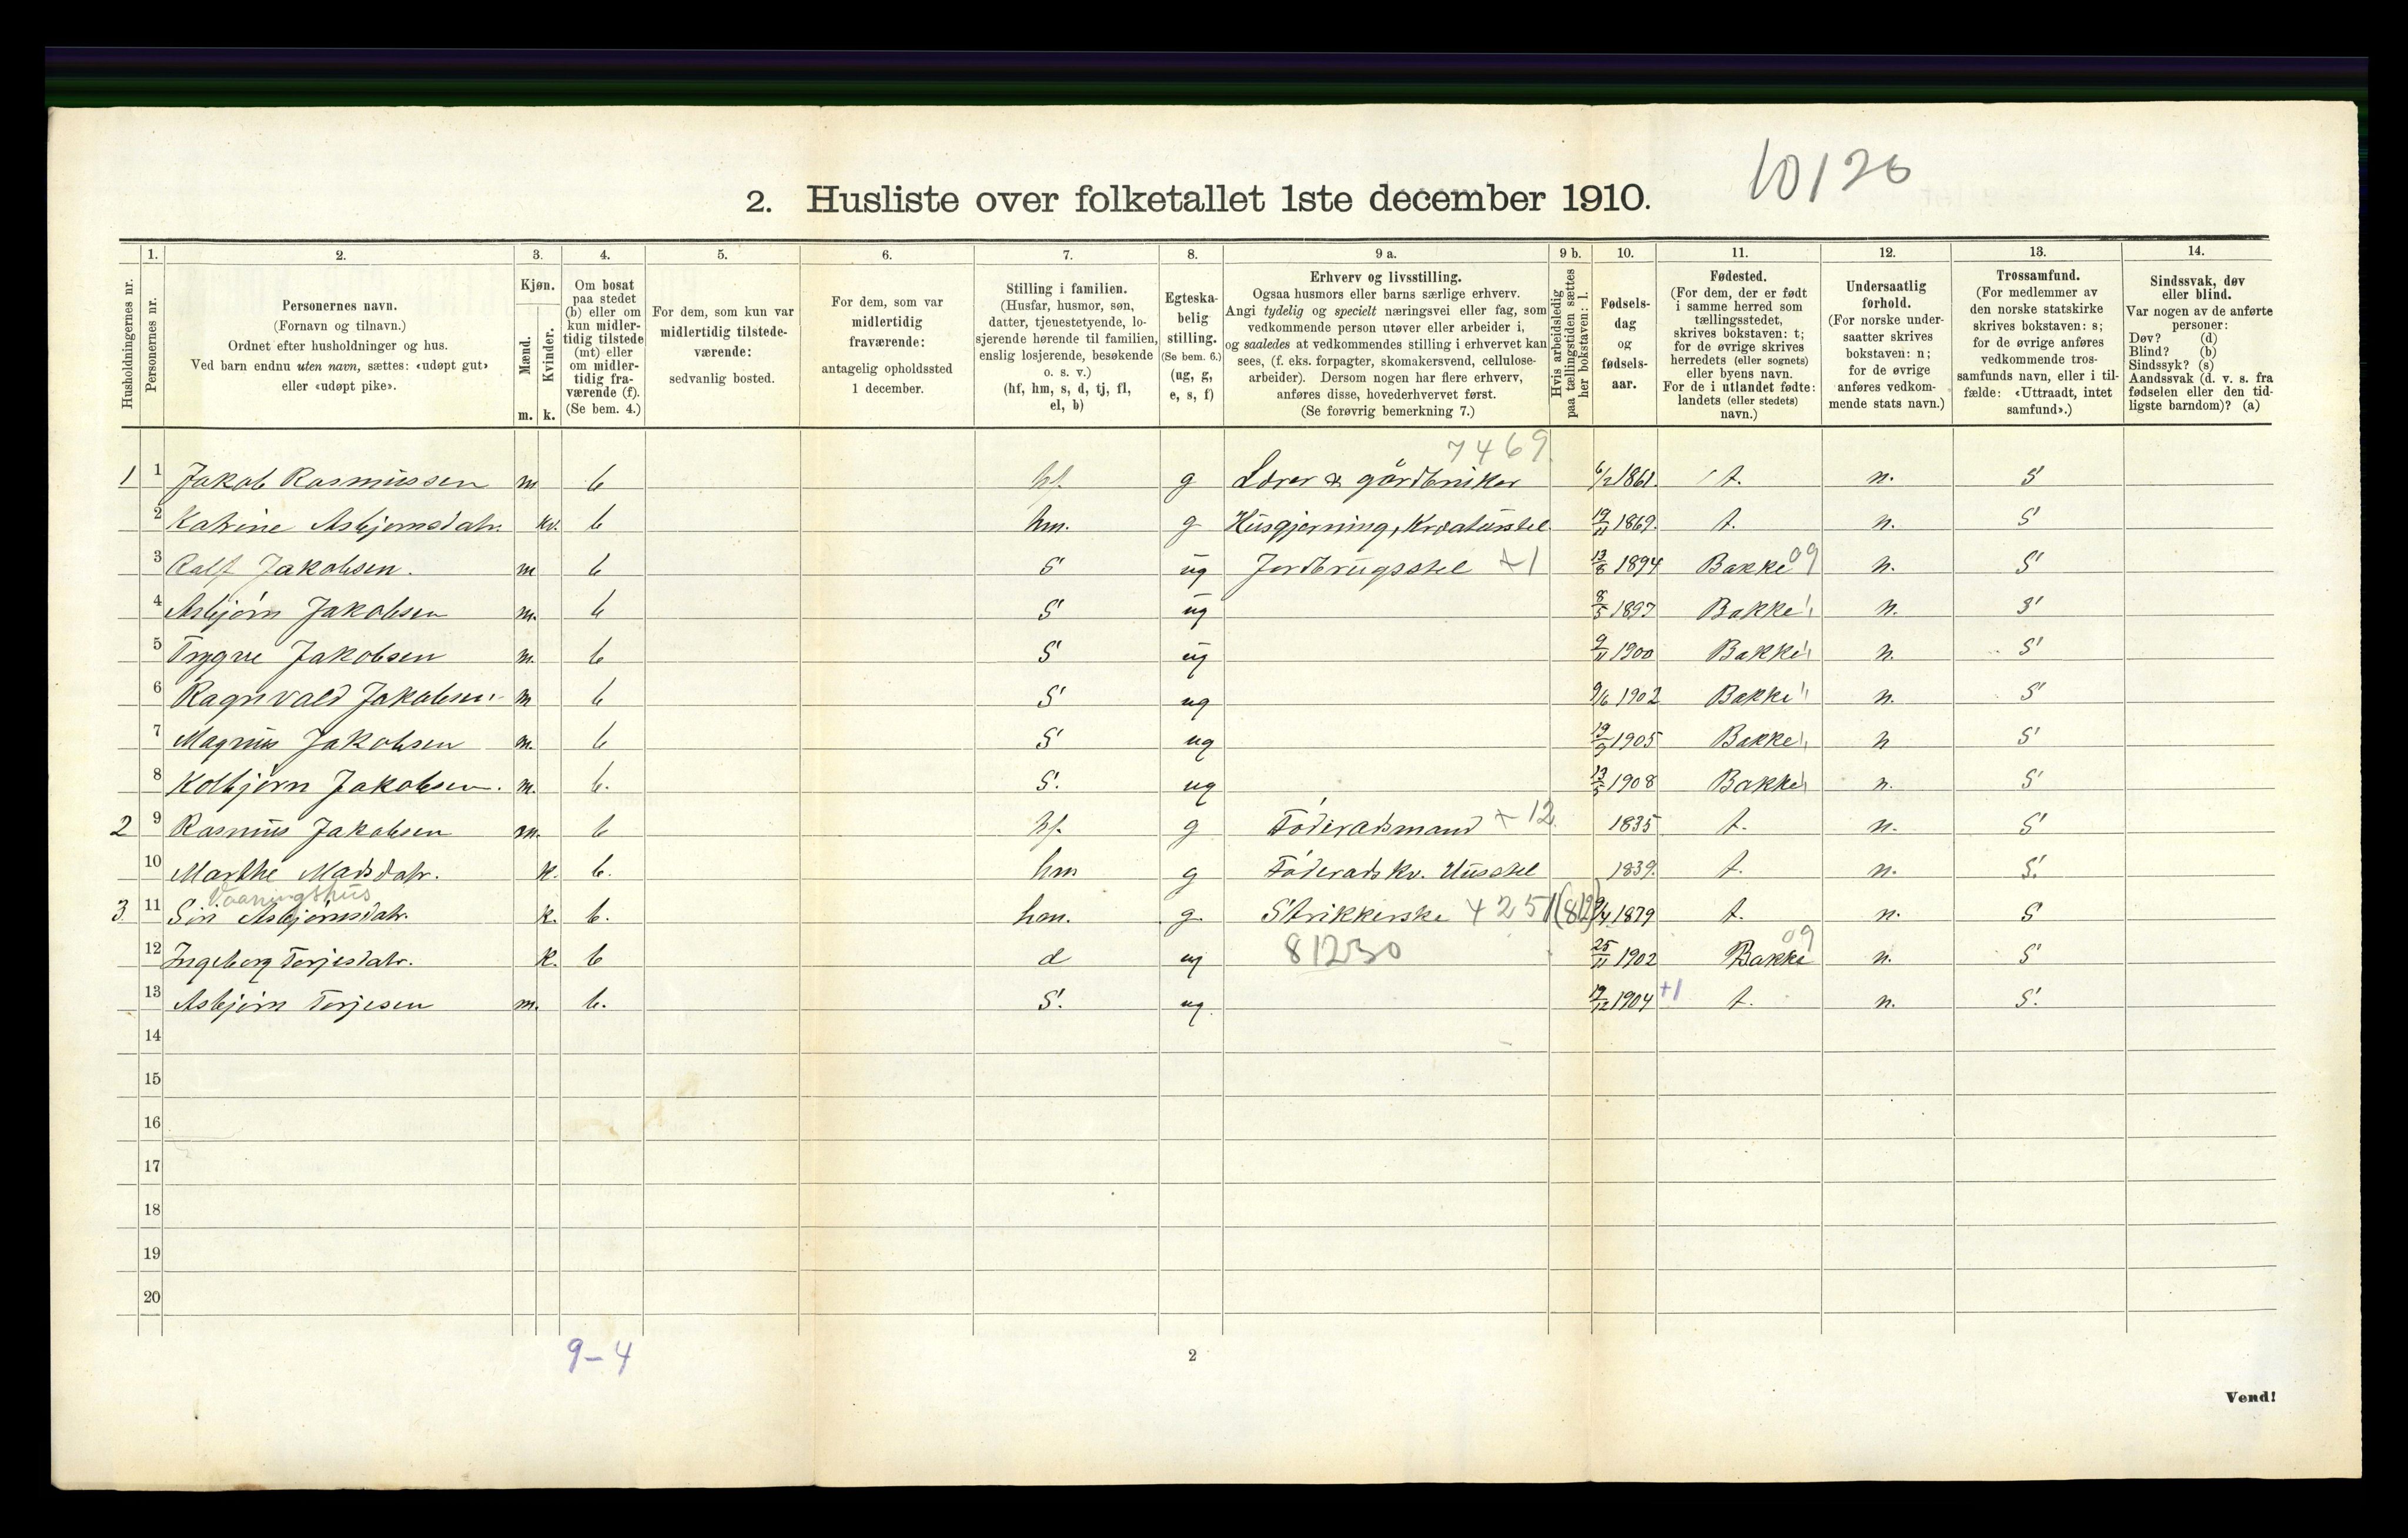 10120
2. Husliste over folketallet 1ste december 1910.
Husholdningernes nr.
1. Personernes nr.
2. Personernes navn.
(Fornavn og tilnavn.)
Ordnet efter husholdninger og hus.
Ved barn endnu uten navn, sættes: «udøpt gut»
eller «udøpt pike».
3. Kjøn.
Mænd. m.
Kvinder. k.
4. Om bosat
paa stedet
(b) eller om
kun midler-
tidig tilstede
(mt) eller
om midler-
tidig fra-
værende (f).
(Se bem. 4.)
5. For dem, som kun var
midlertidig tilstede-
værende:
sedvanlig bosted.
6. For dem, som var
midlertidig
fraværende:
antagelig opholdssted
1 december.
7. Stilling i familien.
(Husfar, husmor, søn,
datter, tjenestetyende, lo-
sjerende hørende til familien,
enslig losjerende, besøkende
o. s. v.)
(hf, hm, s, d, tj, fl,
el, b)
8. Egteska-
belig
stilling.
(Se bem. 6.)
(ug, g,
e, s, f)
9 a. Erhverv og livsstilling.
Ogsaa husmors eller barns særlige erhverv.
Angi tydelig og specielt næringsvei eller fag, som
vedkommende person utøver eller arbeider i,
og saaledes at vedkommendes stilling i erhvervet kan
sees, (f. eks. forpagter, skomakersvend, cellulose-
arbeider). Dersom nogen har flere erhverv,
anføres disse, hovederhvervet først.
(Se forøvrig bemerkning 7.)
9 b. Hvis arbeidsledig
paa tællingstiden sættes
her bokstaven: l.
10. Fødsels-
dag
og
fødsels-
aar.
11. Fødested.
(For dem, der er født
i samme herred som
tællingsstedet,
skrives bokstaven: t;
for de øvrige skrives
herredets (eller sognets)
eller byens navn.
For de i utlandet fødte:
landets (eller stedets)
navn.)
12. Undersaatlig
forhold.
(For norske under-
saatter skrives
bokstaven: n;
for de øvrige
anføres vedkom-
mende stats navn.)
13. Trossamfund.
(For medlemmer av
den norske statskirke
skrives bokstaven: s;
for de øvrige anføres
vedkommende tros-
samfunds navn, eller i til-
fælde: «Uttraadt, intet
samfund».)
14. Sindssvak, døv
eller blind.
Var nogen av de anførte
personer:
Døv? (d)
Blind? (b)
Sindssyk? (s)
Aandssvak (d. v. s. fra
fødselen eller den tid-
ligste barndom)? (a)
7469.
1 1 Jakob Rasmussen m b hf. g Lærer & gårdbruker 6/2 1861. t. n. S
2 Katrine Asbjørnsdatr. kv. b hm. g Husgjerning, Kreaturstel 19/11 1869. t. n. S
3 Rolf Jakobsen. m b S ug Jordbrugsstel +1 13/8 1894 Bakke 09 n. S
4 Asbjørn Jakobsen m. b S ug 8/5 1897 Bakke " n. S
5 Trygve Jakobsen m. b S ug 9/11 1900 Bakke " n. S
6 Ragnvald Jakobsen m b S ug 9/6 1902 Bakke " n. S
7 Magnus Jakobsen m. b S ug 19/9 1905 Bakke " n S
8 Kolbjørn Jakobsen. m. b. S. ug 13/5 1908 Bakke " n. S
2 9 Rasmus Jakobsen m. b hf. g Føderadsmand +12. 1835 t. n. S
10 Marthe Madsdatr. k. b. hm g Føderadskv. Husstel 1839. t. n. S.
Vaaningshus
3 11 Siri Asbjørnsdatr. k. b. hm. g. Strikkerske 4251(812) 9/4 1879 t. n. S
12 Ingeborg Torjesdatr. k. b d ug 81230 25/11 1902 Bakke 09 n. S
13 Asbjørn Torjesen m. b. S. ug 19/12 1904 +1 t. n. S.
14
15
16
17
18
19
20
9-4
2
Vend!